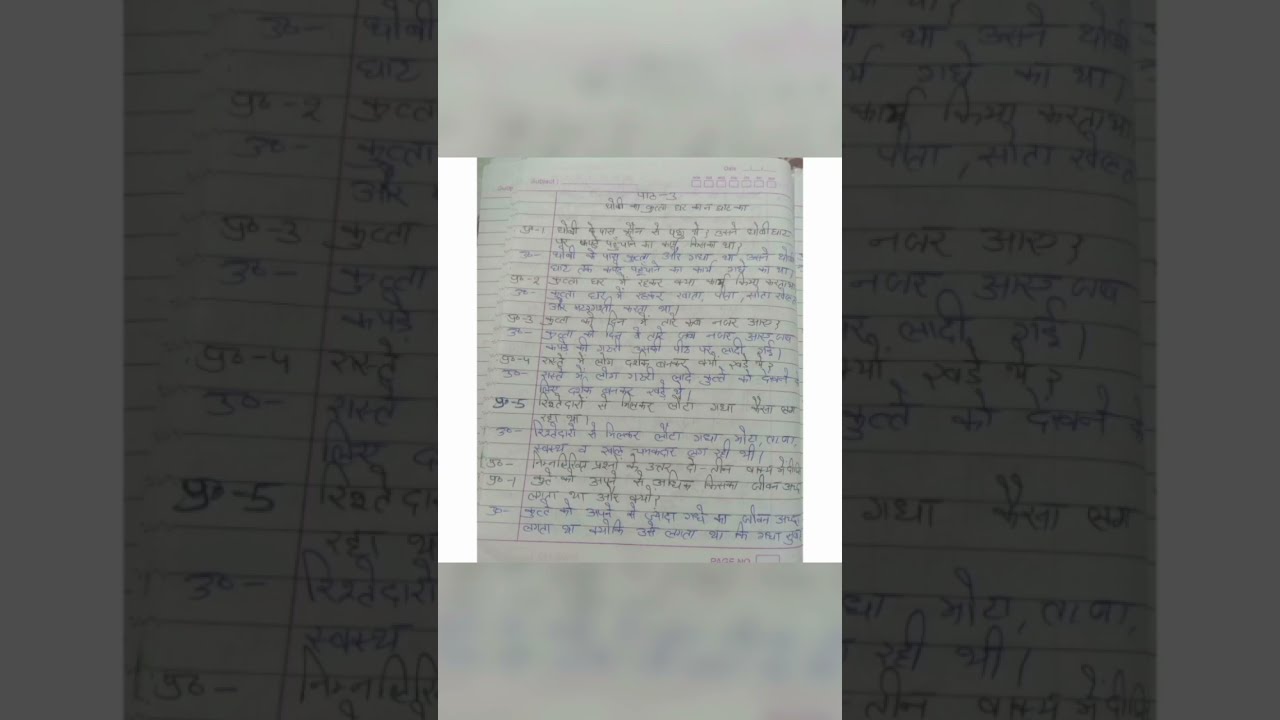 Date
Subject
पाठ-3
धोबी का कुत्ता घर का न घाट का
प्र०-1 धोबी के पास कौन से पशु थे। उसमें धोबीघाट
पर कपड़े पहुँचाने का कार्य किसका था?
उ०- धोबी के पास कुत्ता और गधा था उसमें धोबी
घाट तक कपड़े पहुँचाने का कार्य गधे का था।
प्र०-2 कुत्ता घर में रहकर क्या कार्य किया करता था
उ०- कुत्ता घर में रहकर खाता, पीता, सोता
और करता था।
प्र०-3 कुत्ता को दिन में तारे कब नजर आए?
उ०- कुत्ता को दिन में तारे तब नजर आए जब
कपड़े की गठरी उसकी पीठ पर लादी गई।
प्र०-4 रास्ते में लोग दर्शक बनकर क्यों खड़े थे?
उ०- रास्ते में लोग गठरी लादे कुत्ते को देखने के
लिए दर्शक बनकर खड़े थे।
प्र०-5 रिश्तेदारों से मिलकर लौटा गधा कैसा लग
रहा था।
उ०- रिश्तेदारों से मिलकर लौटा गधा मोटा, ताजा,
स्वस्थ व चमकदार लग रही थी।
प्र०- निम्नलिखित प्रश्नों के उत्तर दो-तीन वाक्य में दीजि
प्र०-1 कुत्ते को अपने से अधिक किसका जीवन अच्छा
लगता था और क्यों?
उ०- कुत्ते को अपने से ज्यादा गधे का जीवन अच्छा
लगता था क्योंकि उसे लगता था कि गधा
PAGE NO.